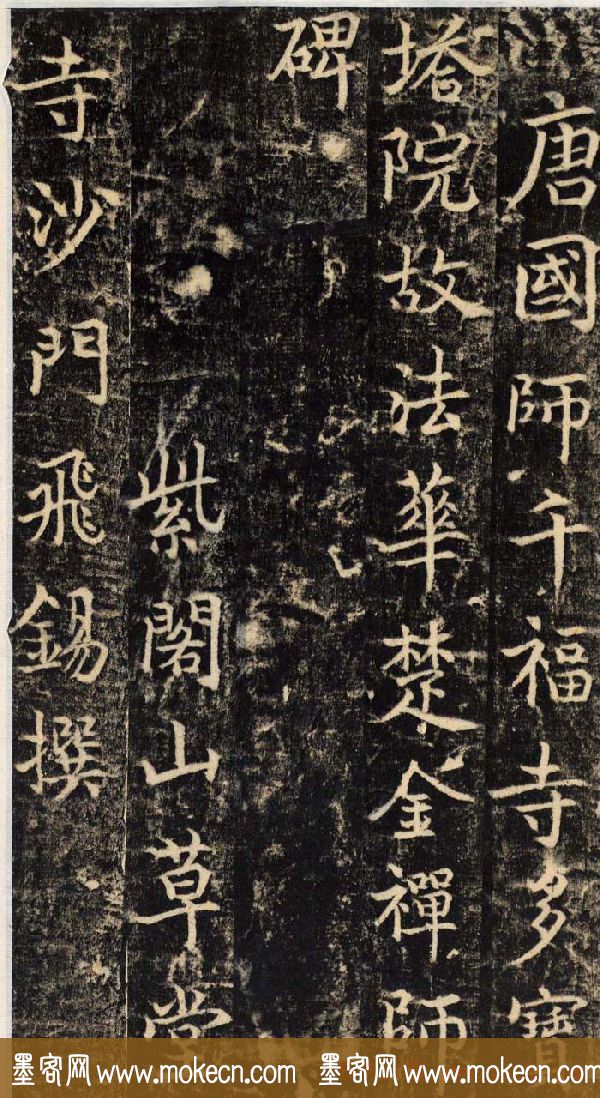 唐國師千福寺多寶
塔院故法華楚金禪師
碑
紫閣山草堂
寺沙門飛錫撰
墨客网 www.mokecn.com 墨客网 www.mokecn.com